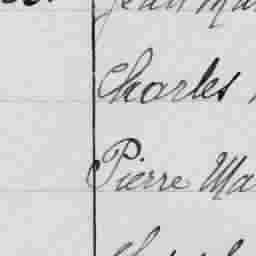 Jean
Charles
Pierre Ma